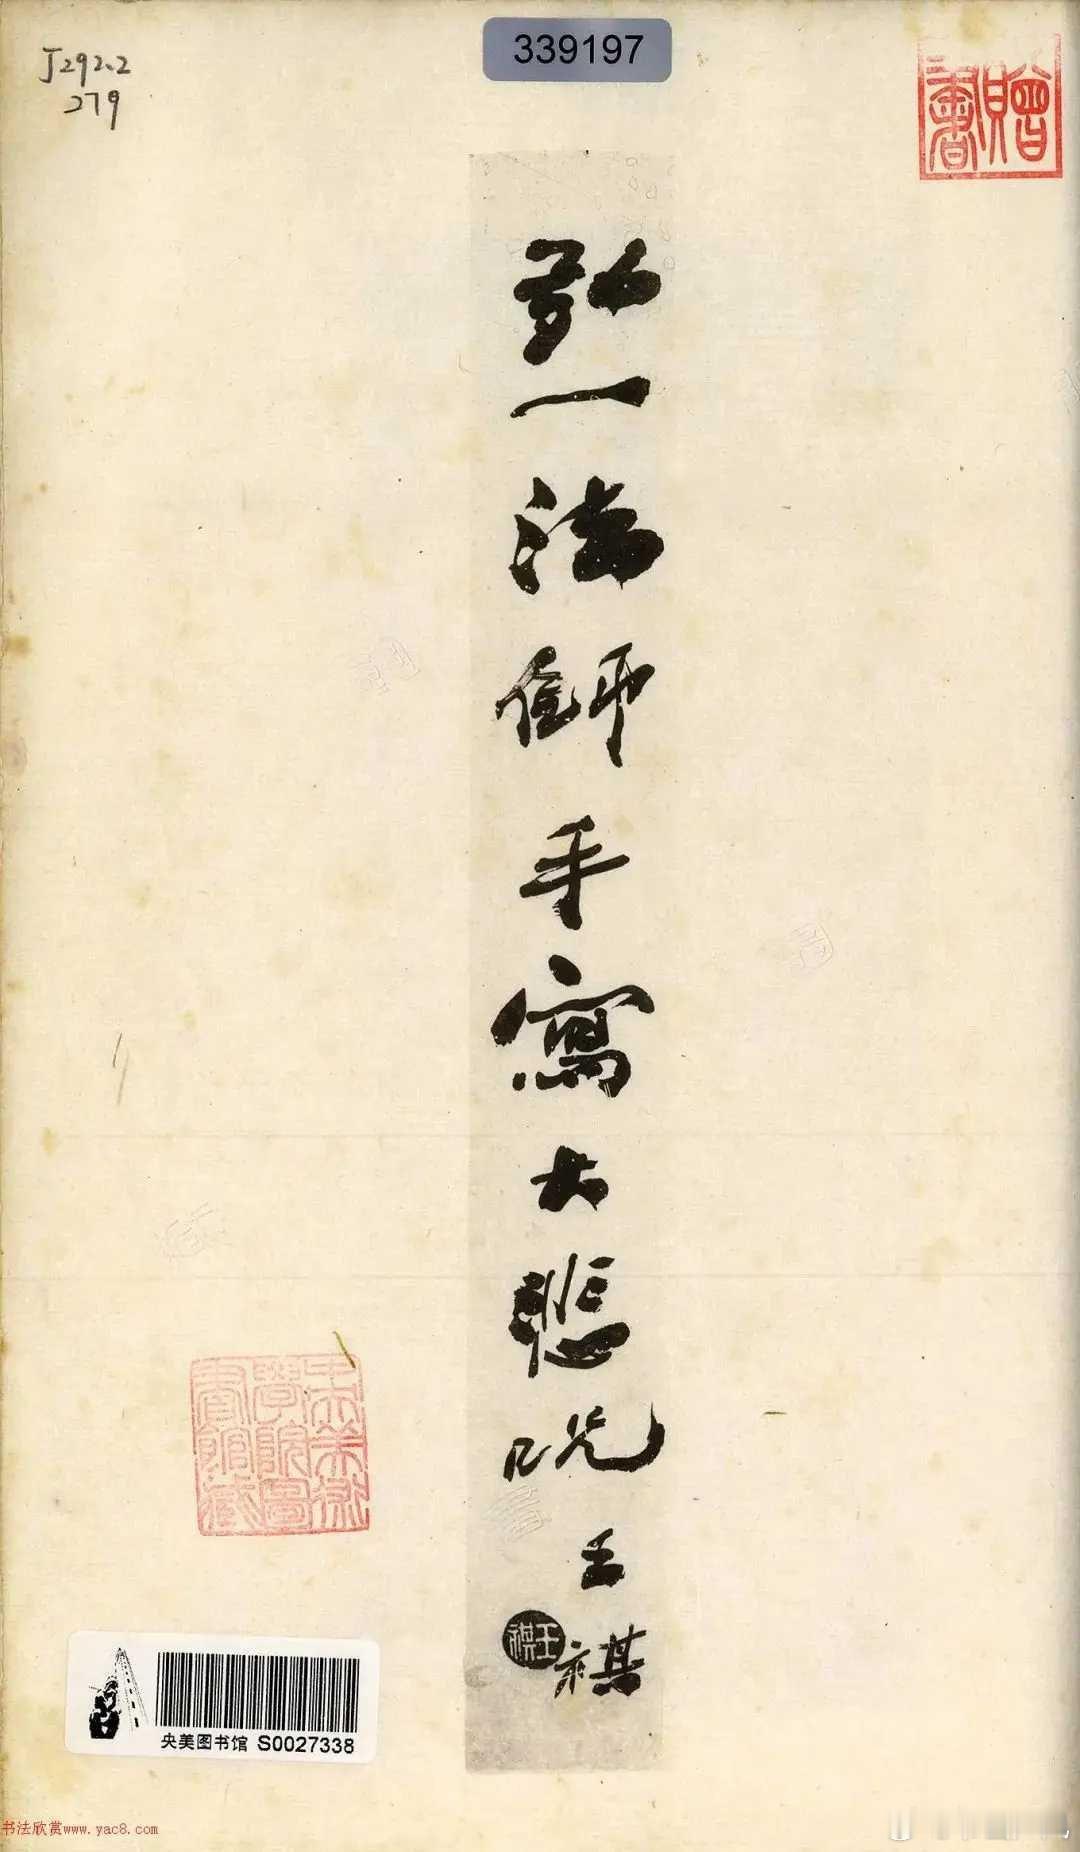 J292.2
279
339197
贈書
弘一法師手寫大悲呪
王祺
王祺
中央美術學院圖書館藏
央美图书馆 S0027338
书法欣赏www.yac8.com